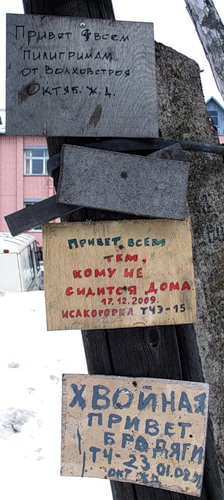 Привет всем
Пилигримам
от Волховстроя
Октяб. ж.д.
ПРИВЕТ ВСЕМ
ТЕМ,
КОМУ НЕ
СИДИТСЯ ДОМА
17.12.2009.
ИСАКОГОРКА ТЧЭ-15
ХВОЙНАЯ
ПРИВЕТ
БРОДЯГИ
ТЧ-23 01.08г
ОКТ ЖД